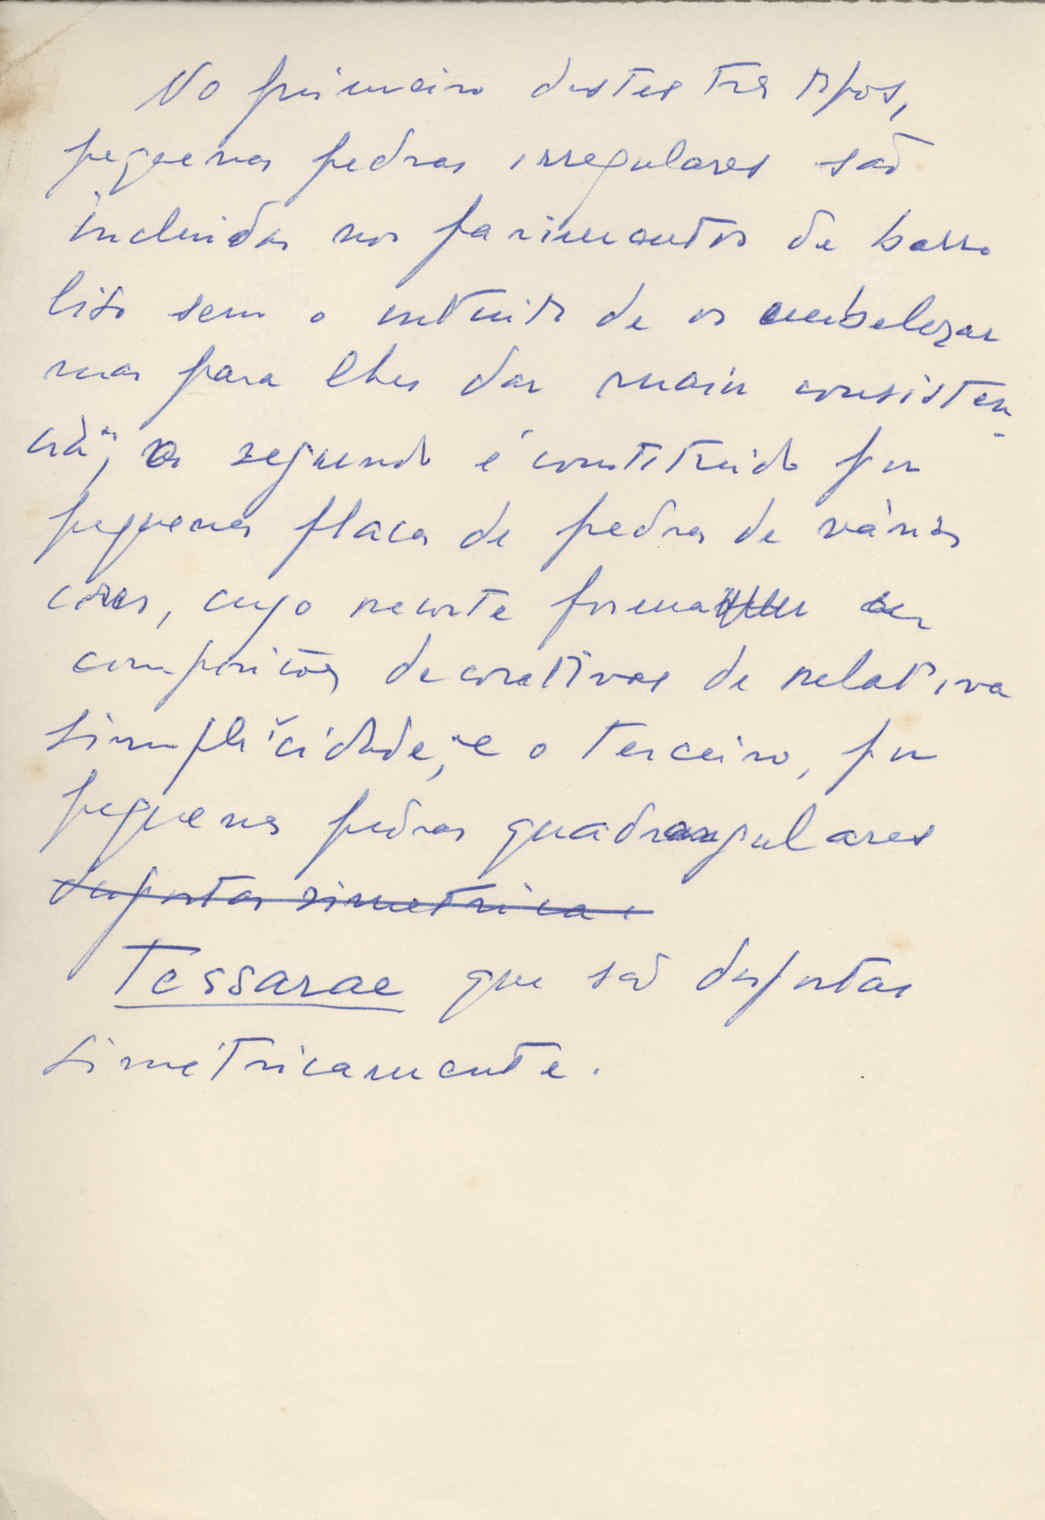 No primeiro destes três tipos,
pequenas pedras irregulares são
incluidas nos pavimentos de barro
liso sem o intuito de os embelezar
mas para lhes dar mais consistên-
cia; o segundo é constituido por
pequenas placas de pedras de várias
cores, cujo recorte forma
composições decorativas de relativa
simplicidade, e o terceiro, por
pequenas pedras quadrangulares
dispostas simetrica
Tessarae que são dispostas
simétricamente.